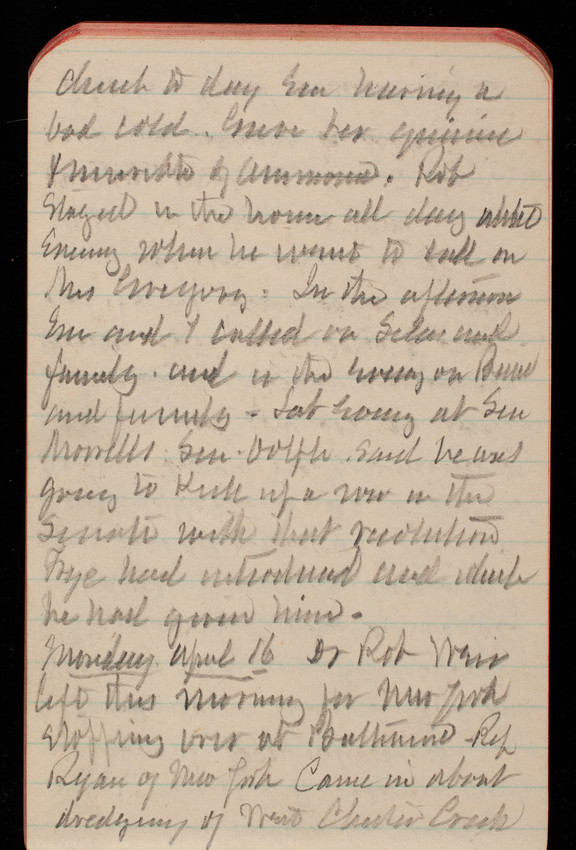 church to day Em having a
bad cold. Gave her quinine
& muriate of ammonia. Rob
stayed in the house all day until
evening when he went to call on
Mrs In the afternoon
Em and I called on Selar and
family. and in the evening on Bend
and family - Sat evening at Sen
Morrells Sen. Dolph said he was
going to kick up a row in the
Senate with that resolution
Frye had introduced and which
he had given him.
Monday April 16 Dr Rob Weir
left this morning for New York
stopping over at Baltimore - Rep
Ryan of New York Came in about
dredging of West Chester Creek